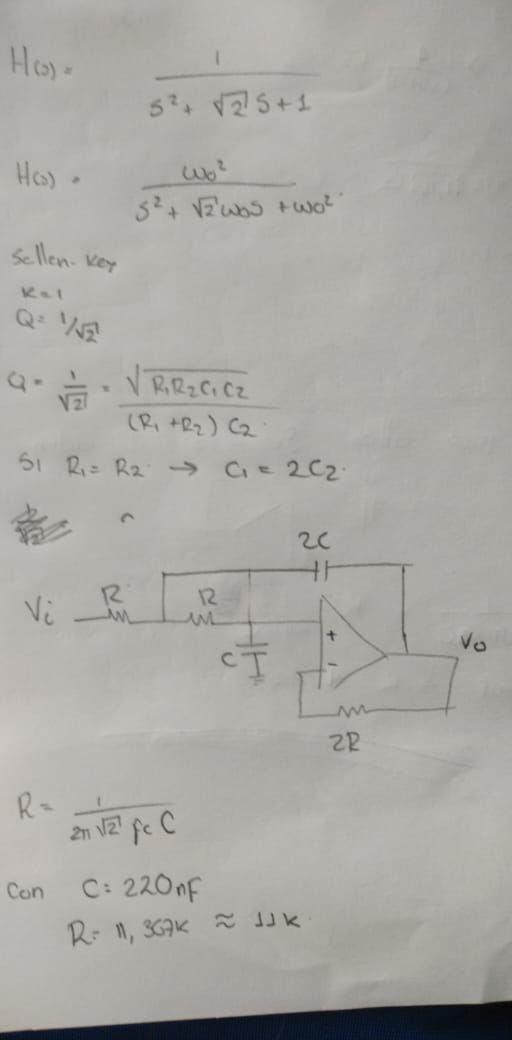 H(s) = 1 / (s² + √2 s + 1)
H(s) = ω₀² / (s² + √2 ω₀s + ω₀²)
Sellen-key
K=1
Q= 1/√2
Q = 1/√2 = √(R₁R₂C₁C₂) / ((R₁ + R₂) C₂)
Si R₁ = R₂ → C₁ = 2C₂.
2C
R
R
Vi
+
C
-
Vo
2R
R = 1 / (2π √2 fc C)
Con C: 220nF
R= 11,367K ≈ 11K.